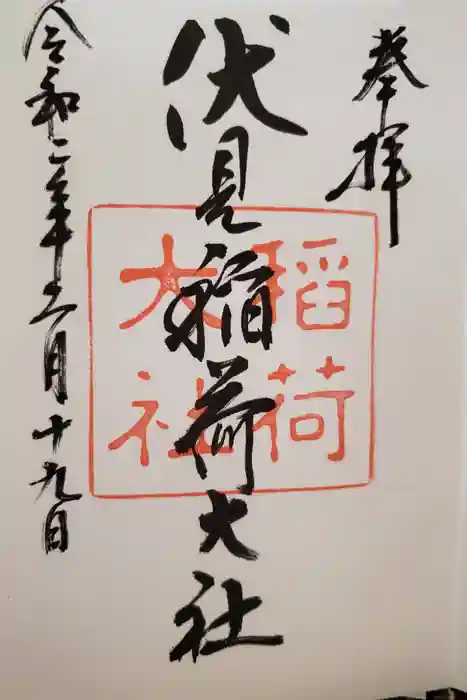 奉拝
伏見稲荷大社
稲荷
大社
令和二年二月十九日